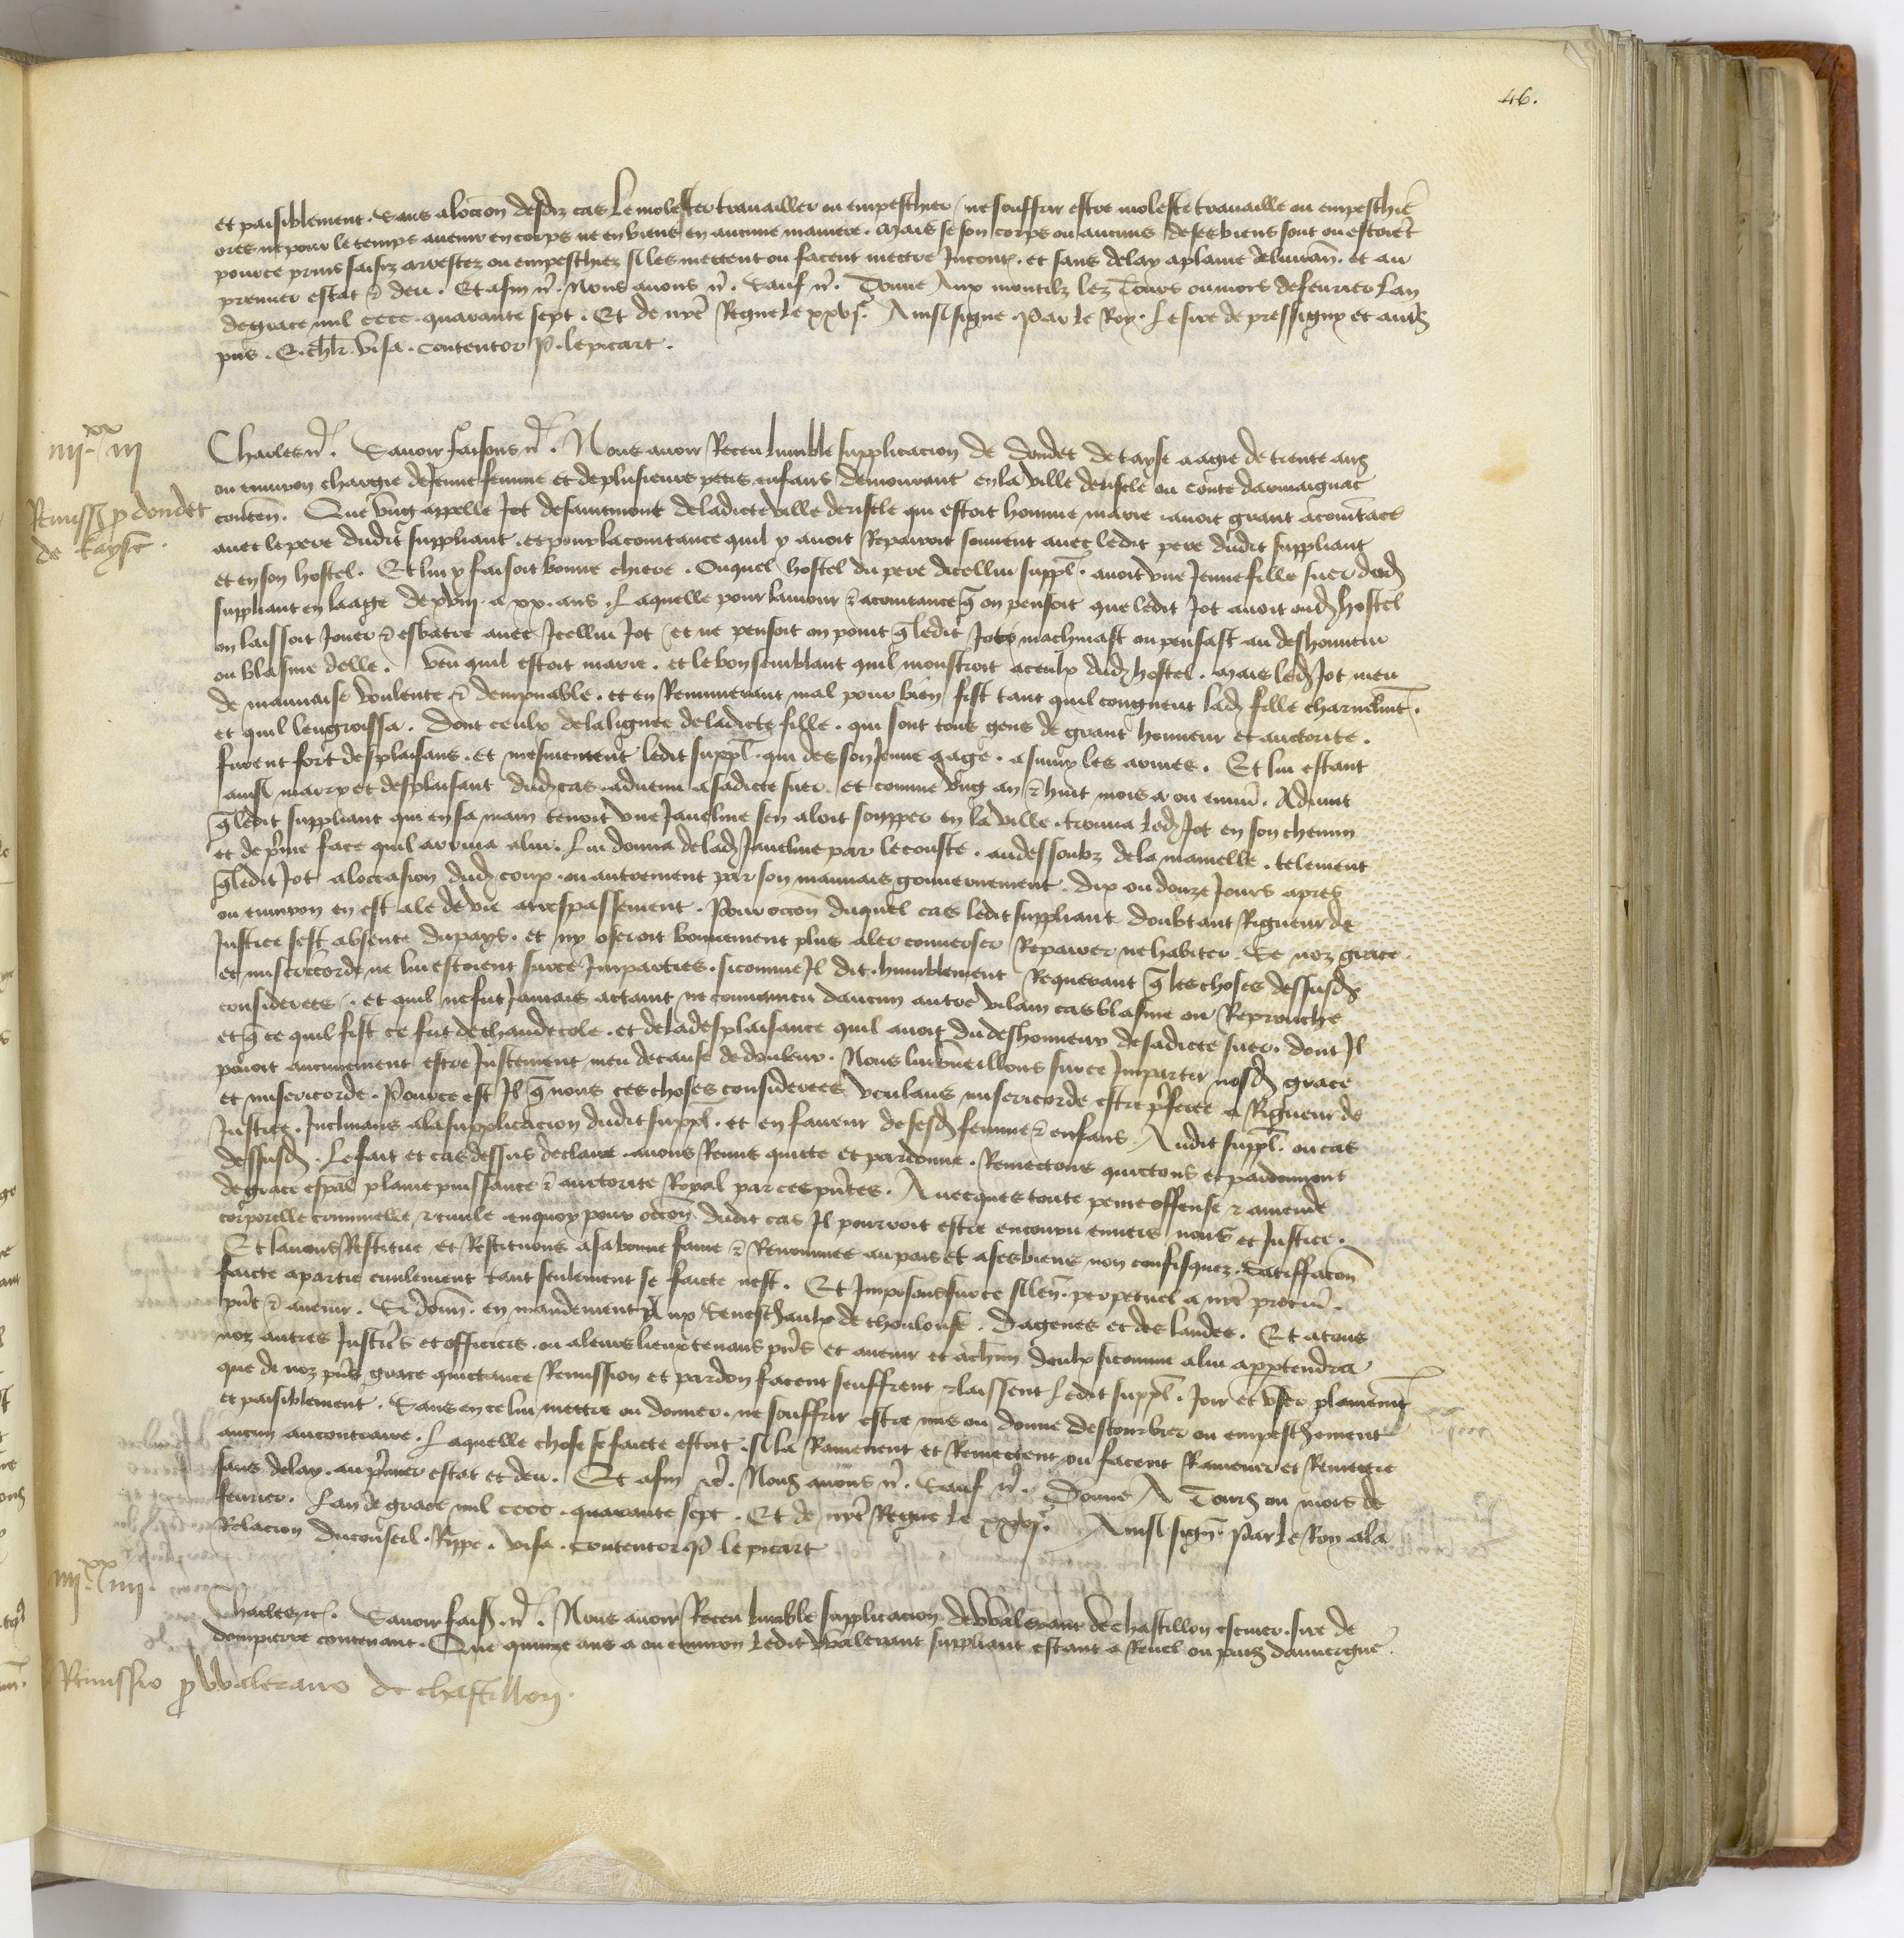 46.
et paisiblement. Sans a loccon desdiz cas le molester travailler ou empeschier / ne souffrir estre moleste travaille ou empeschie
ores ne pour le temps avenir en corps ne en biens en aucune maniere. Mais se son corps ou aucuns de ses biens sont ou estoiēt
pource prins saisiz arrestez ou empeschiez Ilz les mettent ou facent mettre Incont. et sans delay a plaine delivran. et au
premier estat & deu. Et afin &c. Nous avons &c. Sauf &c. Donne Aux montilz lez Tours ou mois de fevrier Lan
de grace mil cccc. quarante sept. Et de nre Regne le xxvje. Ainsi signe. Par le Roy. Le sire de pressigny et autꝭ
pns. E. chlr. visa. contentor P. le picart.
iiij xx iij
Remissio p dondet
de tayse.
Charles &c. Savoir faisons &c. Nous avoir Receu humble supplicacion de dondet de tayse aagie de trente ans
ou environ chargie de Jeune femme et de plusieurs petis enfans demourant en la ville deriscle ou conte darmaignac
conten. Que ung appelle Jot de saintmont de ladicte ville deriscle qui estoit homme marie. avoit grant acointace
avec le pere dudit suppliant. et pour lacointance quil y avoit Repairoit souvent avec ledit pere dudit suppliant
et en son hostel. Et lui y faisoit bonne chiere. Ouquel hostel du pere dicellui suppl. avoit une Jeune fille suer dud
suppliant en laage de xviij. a xx. ans. Laquelle pour lamour & acointance q̄ on pensoit que ledit Jot avoit oud hostel
on laissoit Jouer & esbatre avec Icellui Jot / et ne pensoit on point q̄ ledit Jot machinast ou pensast au deshonneur
ou blasme delle. Veu quil estoit marie. et le bon semblant quil monstroit a ceulx dud hostel. Mais led Jot meu
de mauvaise voulente & dempnable. et en Remunerant mal pour bien / fist tant quil congneut lad fille charnelmt.
et quil lengroissa. Dont ceulx de la lignee de ladicte fille. qui sont tous gens de grant honneur et auctorite.
furent fort desplaisans. et mesmement ledit suppl. qui des son Jeune aage. a suivy les armes. Et lui estant
ainsi marry et desplaisant dud cas. advenu a sadicte suer. et comme ung an & huit mois a ou envir. Advint
q̄ ledit suppliant qui en sa main tenoit une Javeline sen aloit soupper en la ville. trouva led Jot en son chemin
et de prime face quil arriva a lui. Lui donna de lad Javeline par le couste. au dessoubz de la mamelle. telement
q̄ ledit Jot a loccasion dud coup. ou autrement par son mauvais gouvernement. dix ou douze Jours apres
ou environ en est ale de vie a trespassement. Pour occon duquel cas ledit suppliant doubtant Rigueur de
Justice sest absente du pays. et ny oseroit bonnement plus aler converser Repairer ne habiter. Se noz grace
et misericorde ne lui estoient sur ce Imparties. si comme Il dit. humblement Requerant q̄ les choses dessusd
considerees. et quil ne fut Jamais actaint ne convaincu daucun autre vilain cas blasme ou Reprouche
et q̄ ce quil fist ce fut de chaudecole. et de la desplaisance quil avoit du deshonneur de sadicte suer. dont Il
povoit aucunement estre Justement meu de cause de douleur. Nous lui vueillons sur ce Impartir nosd grace
et misericorde. Pource est Il q̄ nous ces choses considerees voulans misericorde estre preferee a Rigueur de
Justice. Inclinans a la supplicacion dudit suppl. et en faveur de sesd femme & enfans. Audit suppl. ou cas
dessusd. Le fait et cas dessus declaire avons Remis quicte et pardonne. Remectons quictons et pardonnons
de grace espal plaine puissance & auctorite Royal par ces pntes. Avecques toute peine offense & amende
corporelle criminelle & civile. en quoy pour occon dudit cas Il pourroit estre encouru envers nous et Justice.
Et lavons Restitue et Restituons a sa bonne fame & Renommee au pais et a ses biens non confisquez. Satisffacon
faicte a partie civilement tant seulement se faicte nest. Et Imposons sur ce silen. perpetuel a nre procur.
pnt & avenir. Si donn. en mandement Aux Seneschaulx de thoulouse. Dagenes et des landes. Et a tous
noz autres Justic̄s et officiers. ou a leurs lieuxtenans pns et avenir et a chun deulx si comme a lui appartendra
que de noz pns grace quictance Remission et pardon facent seuffrent & laissent Ledit suppl. joir et user plainemt
et paisiblement. Sans en ce lui mettre ou donner. ne souffrir estre mis ou donne destourbier ou empeschement
aucun au contraire. Laquelle chose se faicte estoit. Ilz la Ramenent et Remectent ou facent Ramener et Remectre
sans delay. au premier estat et deu. Et afin &c. Nous avons &c. Sauf &c. Donne A Tours ou mois de
fevrier. Lan de grace mil cccc. quarante sept. Et de nre Regne le xxvje. Ainsi sign. Par le Roy a la
Relacion du conseil. Rippe. visa. contentor P. le picart
iiij xx iiij.
Charles &c. Savoir fais. &c. Nous avoir Receu humble supplicacion de Waleran de chastillon escuier. sire de
dompierre contenant. Que quinze ans a ou environ ledit Walerant suppliant estant a Revel ou pais dauvergne.
Remissio p Walerano de chastillon.